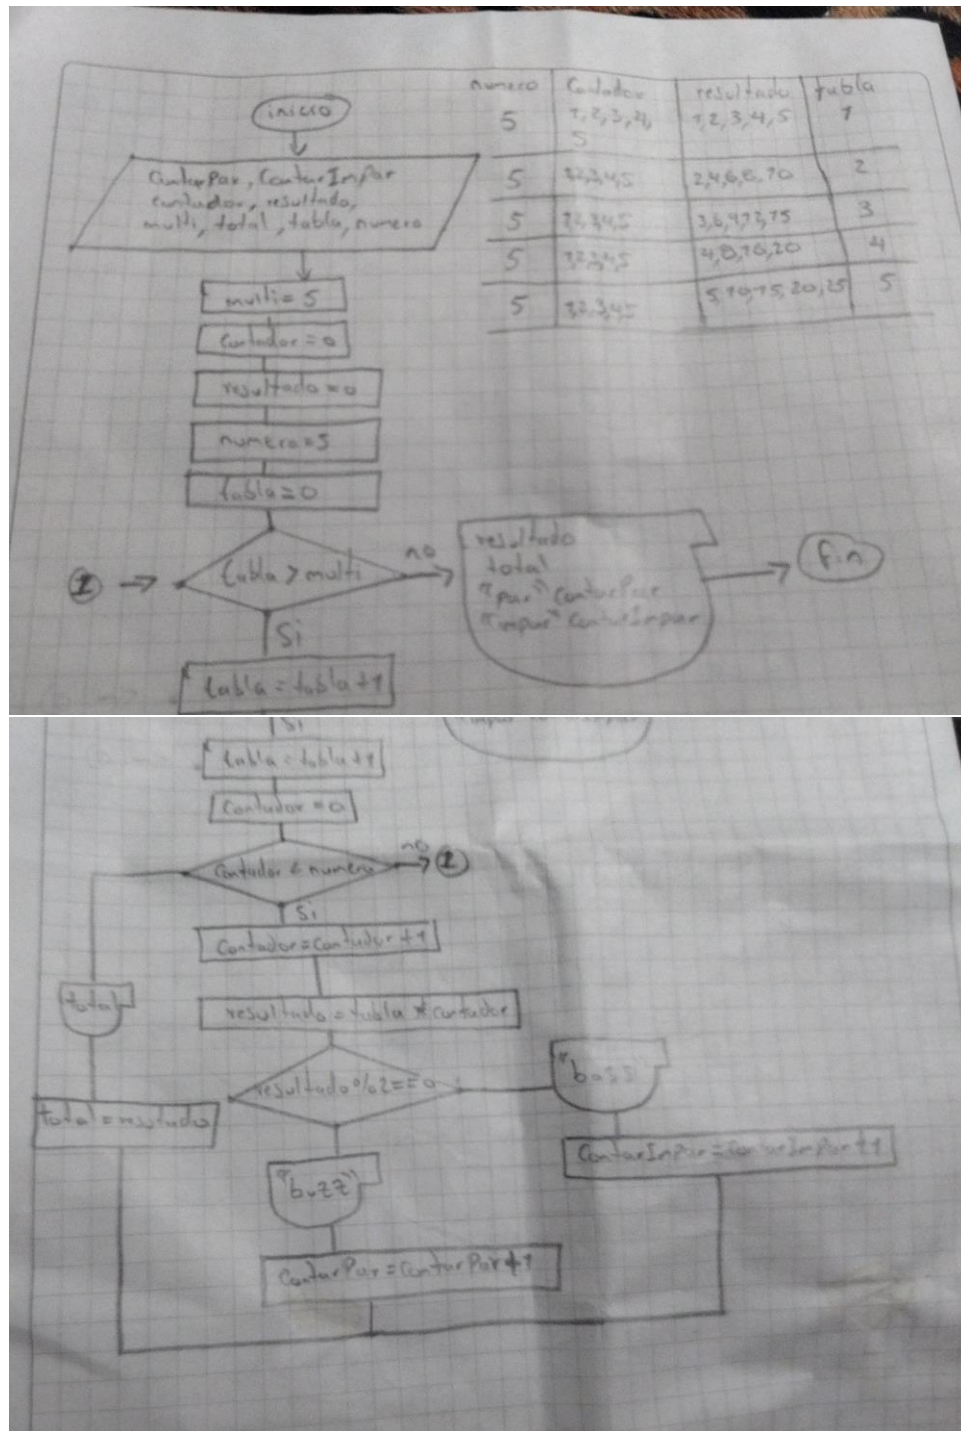 inicio
ContarPar, ContarImpar
contador, resultado,
multi, total, tabla, numero
multi = 5
contador = 0
resultado = 0
numero = 5
tabla = 0
1
tabla > multi
no
Si
resultado
total
"par" ContarPar
"impar" ContarImpar
fin
tabla = tabla + 1
numero Contador resultado tabla
5 1, 2, 3, 4, 1, 2, 3, 4, 5 1
5
5 1,2,3,4,5 2,4,6,8,10 2
5 1,2,3,4,5 3,6,9,12,15 3
5 1,2,3,4,5 4,8,16,20 4
5 1,2,3,4,5 5,10,15,20,25 5
Si
tabla = tabla + 1
Contador = 0
Contador < numero
no
1
Si
Contador = contador + 1
total
resultado = tabla * contador
resultado % 2 == 0
total = resultado
"buzz"
ContarImpar = contarImpar + 1
ContarPar = ContarPar + 1